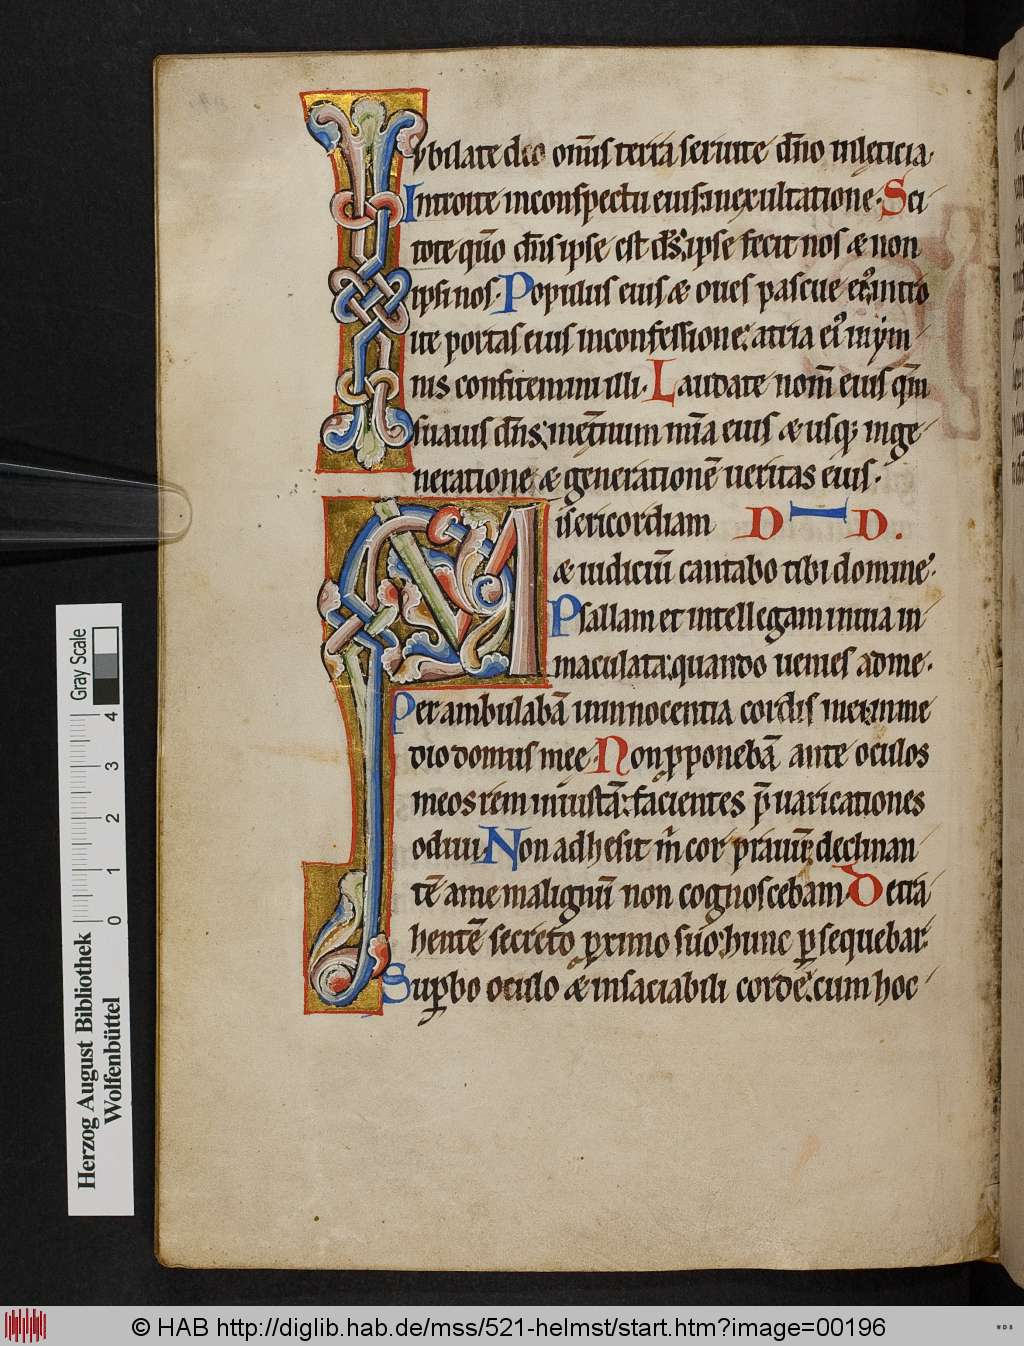 Iubilate deo om̄is terra seruite dn̄o inlęticia.
Introite inconspectu eius: inexultatione. Sci
tote qm̄o dn̄s ipse est d̄s: ipse fecit nos & non
ipsi nos. Populus eius & oues pascue ei': intro
ite portas eius inconfessione: atria ei' inym
nis confitemini illi. Laudate nom̄ eius qm̄
suauis dn̄s: inęt̄num mīa eius & usq; inge
neratione & generationē ueritas eius.
Misericordiam D D.
& iudiciū cantabo tibi domine:
Psallam et intellegam inuia in
maculata: quando uenies adme.
Perambulabā ininnocentia cordis mei: inme
dio domus mee. Non p̱ponebā ante oculos
meos rem iniustā: facientes p̄uaricationes
odiui. Non adhesit m̄ cor prauū: declinan
tē ame malignū non cognoscebam. Detra
hentē secreto p̱ximo suo: hunc p̱sequebar.
Sup̱bo oculo & insaciabili corde: cum hoc
Gray Scale
0 1 2 3 4
Herzog August Bibliothek
Wolfenbüttel
© HAB http://diglib.hab.de/mss/521-helmst/start.htm?image=00196